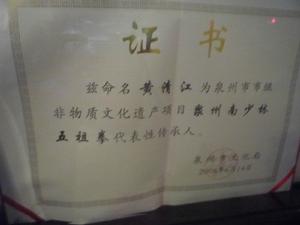 证书
兹命名 黄清江 为泉州市市级
非物质文化遗产项目 泉州南少林
五祖拳 代表性传承人。
泉州市文化局